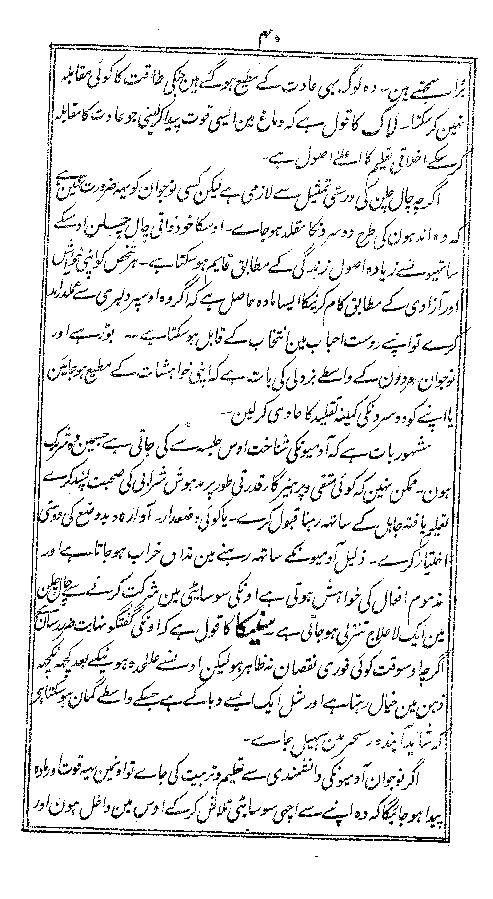 ۴۰
بڑا سمجھتے ہین۔ وہ لوگ بھی عادت کے مطیع ہوگئے ہین جنکی طاقت کا کوئی مقابلہ
نہین کرسکتا۔ لاک کا قول ہے کہ دماغ مین ایسی قوت پیدا کرلینی جو عادت کا مقابلہ
کرسکے اخلاقی تعلیم کا اعلےٰ اصول ہے۔
اگرچہ چال چلن کی درستی تمثیل سے لازمی ہے لیکن کسی نوجوان کو یہہ ضرورت نہین ہے
کہ وہ اندہون کی طرح دوسرونکا مقلد ہوجاے۔ اوسکا خود ذاتی چال چلن اوسکے
ساتھیونسے زیادہ اصول زندگی کے مطابق قایم ہوسکتا ہے۔ ہر شخص کو اپنی خواہش
اور آزادی کے مطابق کام کرنیکا ایسا مادہ حاصل ہے کہ اگر وہ اوسپر دلیری سے عملدرآمد
کرے تو اپنے دوست احباب مین انتخاب کے قابل ہوسکتا ہے -- بوڑہے اور
نوجوان مردون کے واسطے بزدلی کی بات ہے کہ اپنی خواہشات کے مطیع ہوجائین
یا اپنے کو دوسرونکی کمینہ تقلید کا عادی کرلین--
مشہور بات ہے کہ آدمیونکی شناخت اوس جلسہ سے کی جاتی ہے جسمین وہ شریک
ہون۔ ممکن نہین کہ کوئی متقی و پرہیزگار قدرتی طور پر مدہوش شرابی کی صحبت پسند کرے
تعلیم یافتہ جاہل کے ساتھ رہنا قبول کرے۔ یا کوئی وضعدار۔ آوارہ و بد وضع کی دوستی
اختیار کرے۔ ذلیل آدمیونکے ساتھ رہنے مین مذاق خراب ہوجاتا ہے اور
مذموم افعال کی خواہش ہوتی ہے اونکی سوسائٹی مین شرکت کرنے سے چال چلن
مین ایک لاعلاج تنزلی ہوجاتی ہے سنیکا کا قول ہے کہ اونکی گفتگو نہایت ضرر رسان ہے
اگرچہ اوسوقت کوئی فوری نقصان نہ ظاہر ہو لیکن اونسے علیٰحدہ ہونیکے بعد کچھہ نکچھہ
ذہن مین خیال رہتا ہے اور مثل ایک ایسے وبا کے ہے جسکے واسطے گمان ہوسکتا ہو
کہ شاید آیندہ رستخیز مین پھیل جاے۔
اگر نوجوان آدمیونکی دانشمندی سے تعلیم و تربیت کی جاے تو اونمین یہہ قوت اور مادہ
پیدا ہوجائیگا کہ وہ اپنے سے اچھی سوسائٹی تلاش کرکے اوس مین داخل ہون اور